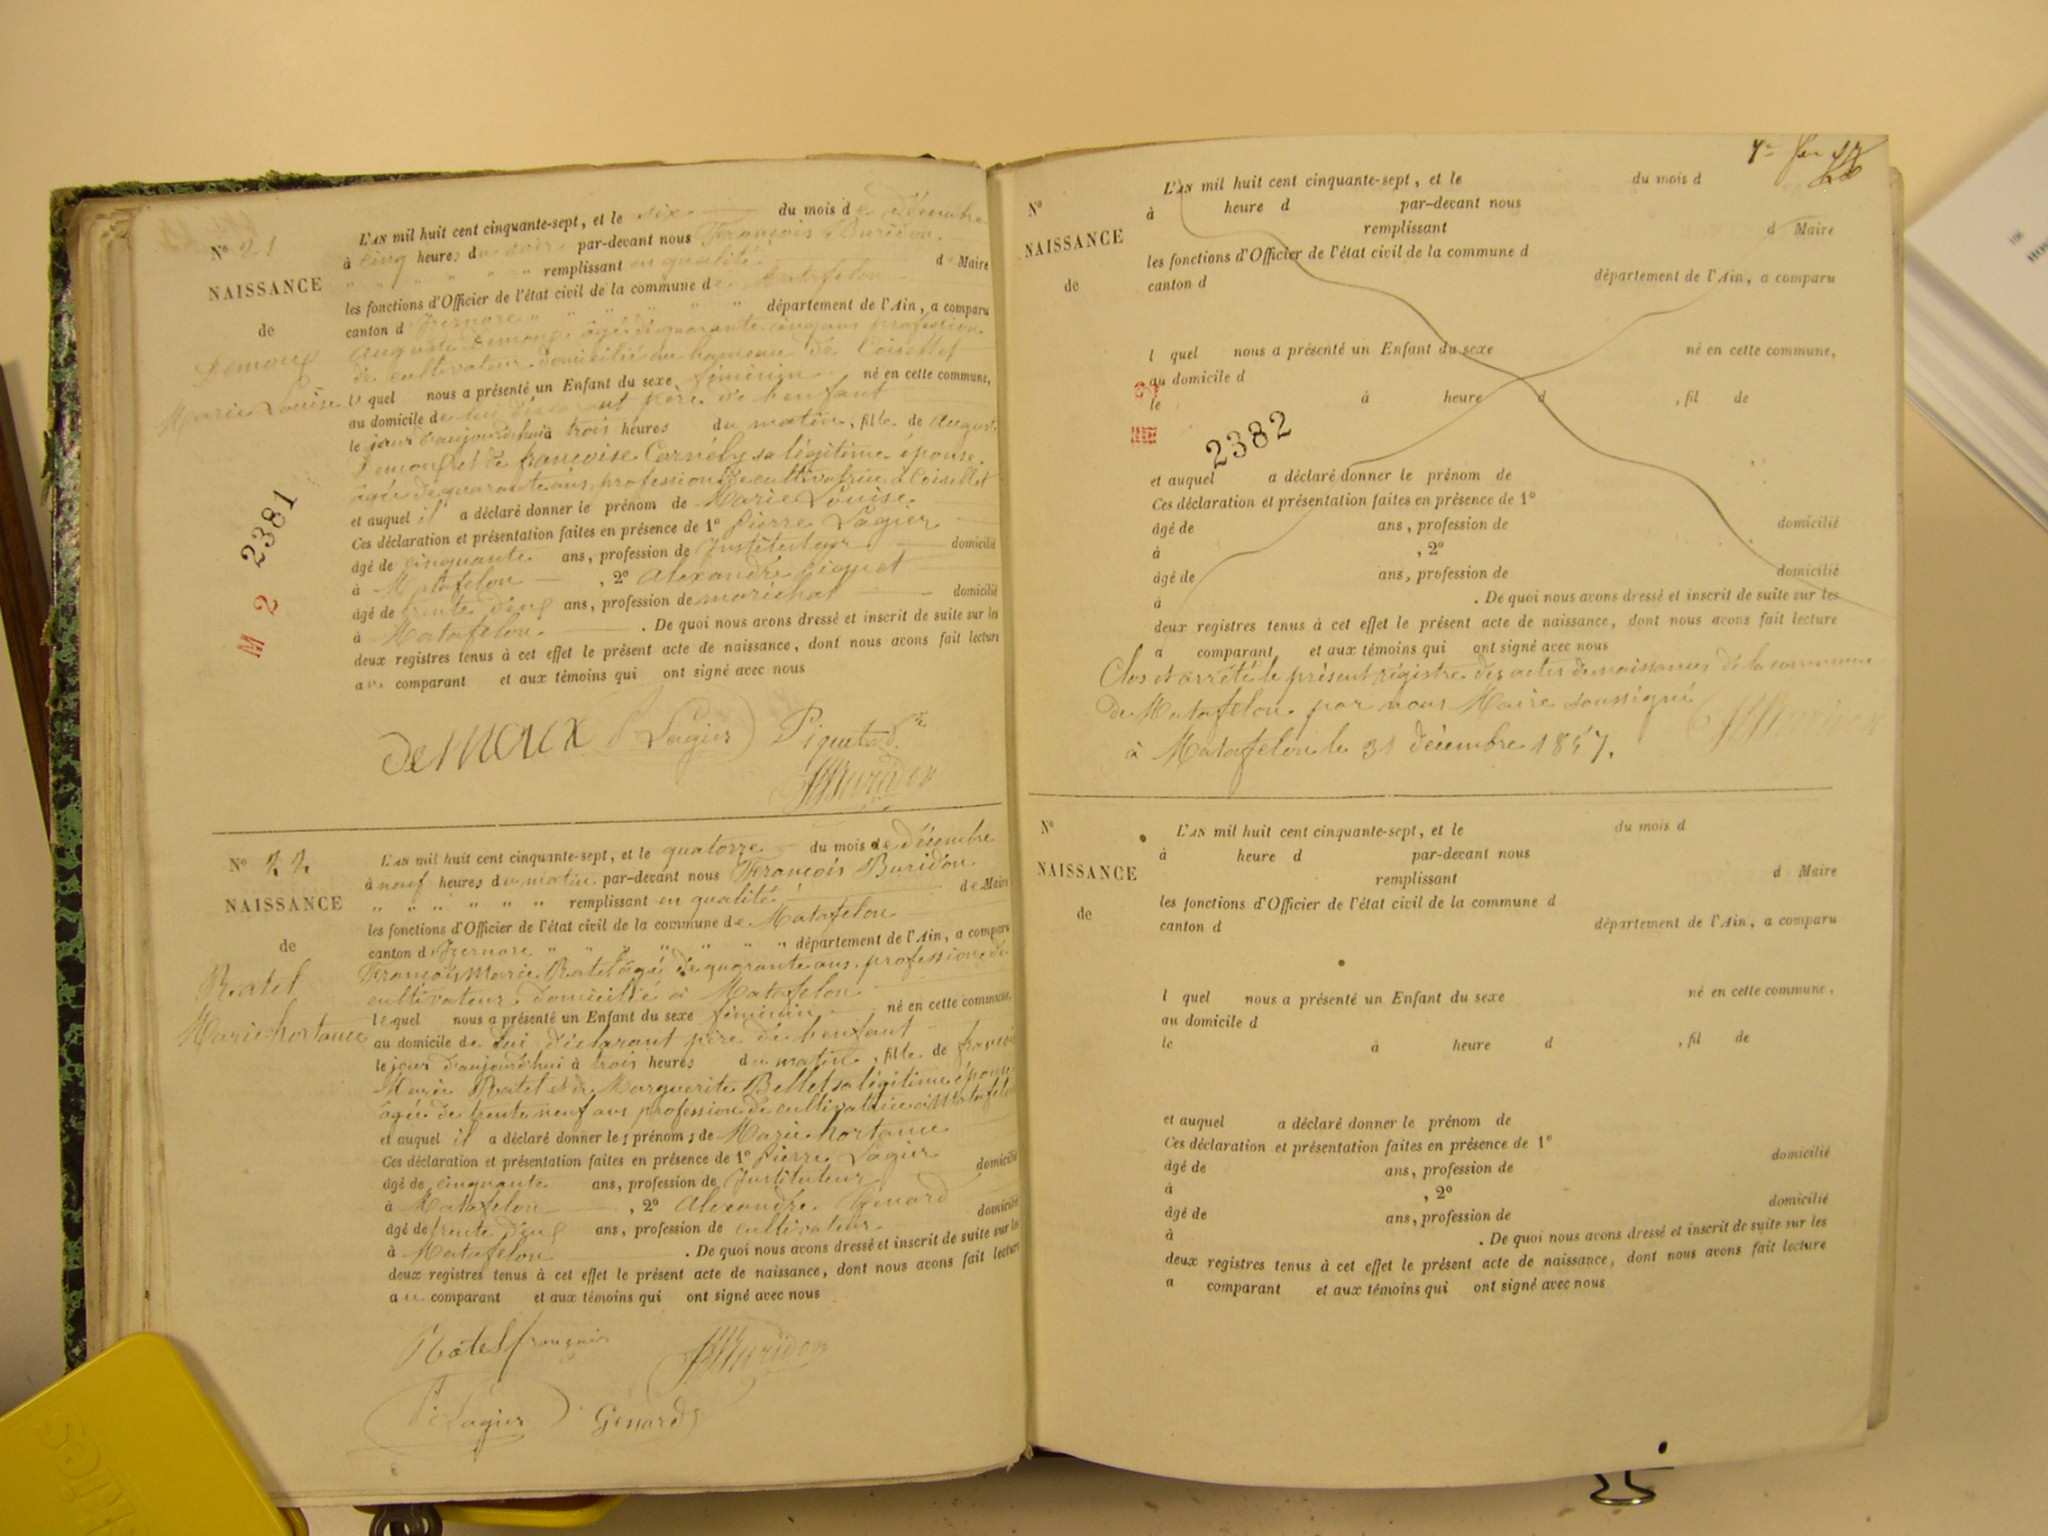 N° 21
NAISSANCE
de
Demoux
Marie Louise
2381
M 2
L'AN mil huit cent cinquante-sept, et le six du mois de décembre
à cinq heures du soir par-devant nous François Buridon
remplissant en qualité de Maire
les fonctions d'Officier de l'état civil de la commune de Matafelon
canton d'Izernore département de l'Ain, a comparu
Auguste Demoux âgé de quarante cinq ans profession
de cultivateur domicilié au hameau de Coisellet
lequel nous a présenté un Enfant du sexe féminin né en cette commune,
au domicile de lui déclarant père de l'enfant
le jour d'aujourd'hui à trois heures du matin, fille de Auguste
Demoux et de françoise Carnéby sa légitime épouse
âgée de quarante ans, profession de cultivatrice à Coisellet
et auquel il a déclaré donner le prénom de Marie Louise
Ces déclaration et présentation faites en présence de 1° Pierre Lagier
âgé de cinquante ans, profession de Instituteur domicilié
à Matafelon, 2° Alexandre Piquet
âgé de trente deux ans, profession de maréchal domicilié
à Matafelon. De quoi nous avons dressé et inscrit de suite sur les
deux registres tenus à cet effet le présent acte de naissance, dont nous avons fait lecture
au comparant et aux témoins qui ont signé avec nous
Demoux P Lagier Piquet
Buridon
N° 22
NAISSANCE
de
Ratel
Marie hortance
L'AN mil huit cent cinquante-sept, et le quatorze du mois de décembre
à neuf heures du matin par-devant nous François Buridon
remplissant en qualité de Maire
les fonctions d'Officier de l'état civil de la commune de Matafelon
canton d'Izernore département de l'Ain, a comparu
François Marie Ratel âgé de quarante ans profession de
cultivateur domicilié à Matafelon
lequel nous a présenté un Enfant du sexe féminin né en cette commune,
au domicile de lui déclarant père de l'enfant
le jour d'aujourd'hui à trois heures du matin, fille de françois
Marie Ratel et de Marguerite Bellet sa légitime épouse
âgée de trente neuf ans profession de cultivatrice à Matafelon
et auquel il a déclaré donner les prénoms de Marie hortance
Ces déclaration et présentation faites en présence de 1° Pierre Lagier
âgé de cinquante ans, profession de Instituteur domicilié
à Matafelon, 2° Alexandre Génard
âgé de trente deux ans, profession de cultivateur domicilié
à Matafelon. De quoi nous avons dressé et inscrit de suite sur les
deux registres tenus à cet effet le présent acte de naissance, dont nous avons fait lecture
au comparant et aux témoins qui ont signé avec nous
Ratel françois Buridon
P Lagier Génard
N°
NAISSANCE
de
2382
L'AN mil huit cent cinquante-sept, et le du mois d
à heure d par-devant nous
remplissant d Maire
les fonctions d'Officier de l'état civil de la commune d
canton d département de l'Ain, a comparu
l quel nous a présenté un Enfant du sexe né en cette commune,
au domicile d
le à heure d , fil de
et auquel a déclaré donner le prénom de
Ces déclaration et présentation faites en présence de 1°
âgé de ans, profession de domicilié
à , 2°
âgé de ans, profession de domicilié
à . De quoi nous avons dressé et inscrit de suite sur les
deux registres tenus à cet effet le présent acte de naissance, dont nous avons fait lecture
a comparant et aux témoins qui ont signé avec nous
Clos et arrêté le présent régistre des actes de naissances de la commune
de Matafelon par nous Maire soussigné
à Matafelon le 31 décembre 1857.
Buridon
N°
NAISSANCE
de
L'AN mil huit cent cinquante-sept, et le du mois d
à heure d par-devant nous
remplissant d Maire
les fonctions d'Officier de l'état civil de la commune d
canton d département de l'Ain, a comparu
l quel nous a présenté un Enfant du sexe né en cette commune,
au domicile d
le à heure d , fil de
et auquel a déclaré donner le prénom de
Ces déclaration et présentation faites en présence de 1°
âgé de ans, profession de domicilié
à , 2°
âgé de ans, profession de domicilié
à . De quoi nous avons dressé et inscrit de suite sur les
deux registres tenus à cet effet le présent acte de naissance, dont nous avons fait lecture
a comparant et aux témoins qui ont signé avec nous